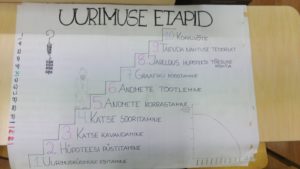 UURIMUSE ETAPID
10 KOKKUVÕTE
8 JÄRELDUS HÜPOTEESI TÕESUSE
7 GRAAFIKU KOOSTAMINE
6 ANDMETE TÖÖTLEMINE
5 ANDMETE KORRASTAMINE
4 KATSE SOORITAMINE
3 KATSE KAVANDAMINE
2 HÜPOTEESI PÜSTITAMINE
1 UURIMUSKÜSIMUSE ESITAMINE